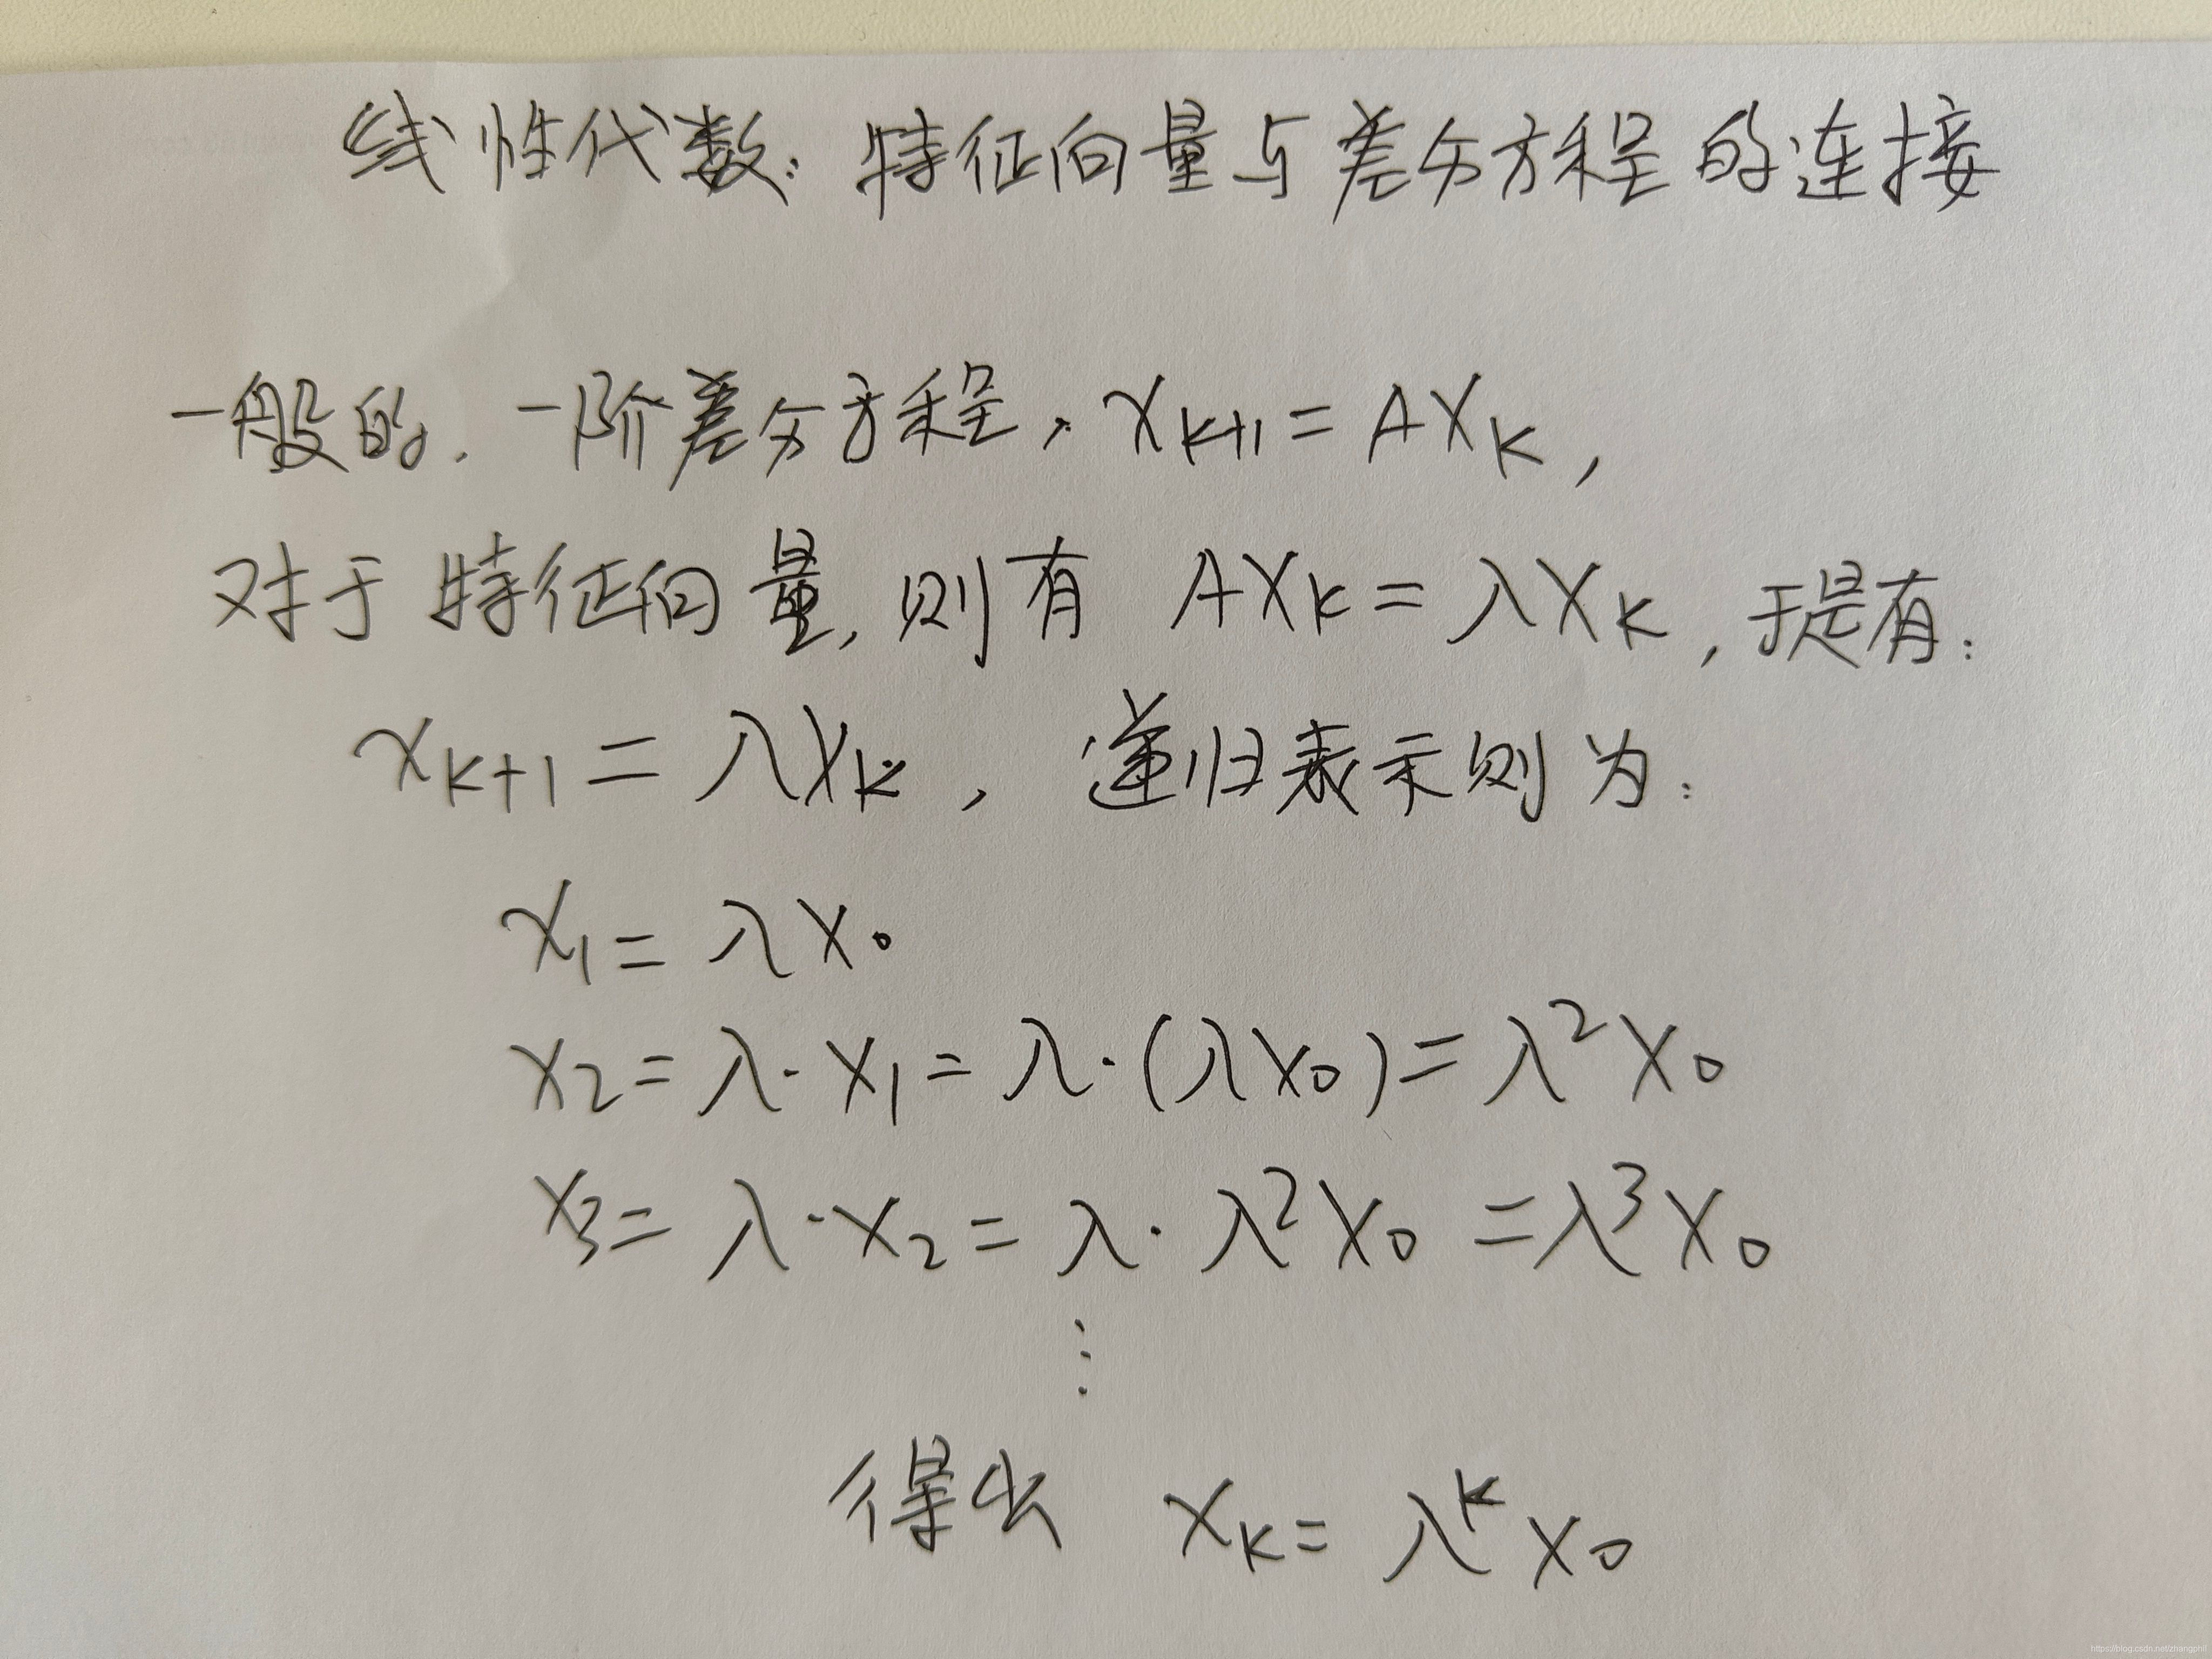 线性代数：特征向量与差分方程的连接
一般的，一阶差分方程，x_{k+1} = Ax_k，
对于特征向量，则有 Ax_k = λx_k，于是有：
x_{k+1} = λx_k，递归表示则为：
x₁ = λx₀
x₂ = λ·x₁ = λ·(λx₀) = λ²x₀
x₃ = λ·x₂ = λ·λ²x₀ = λ³x₀
⋮
得出 x_k = λ^k x₀
https://blog.csdn.net/zhangphil